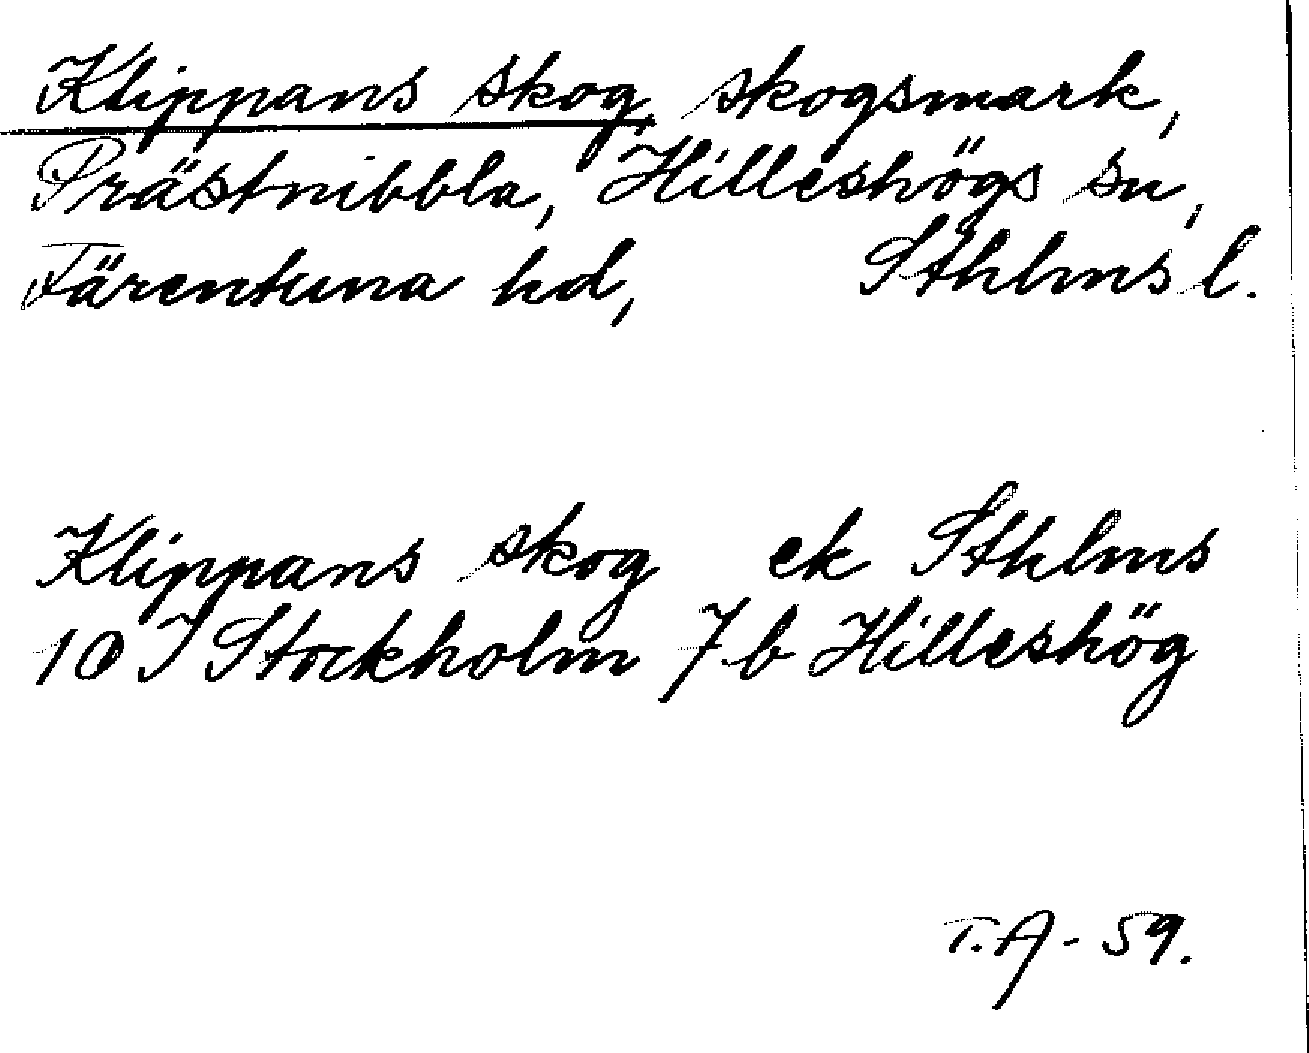 Klippans skog, skogsmark,
Prästnibbla, Hilleshögs sn,
Färentuna hd, Sthlms l.
Klippans skog ek Sthlms
10 I Stockholm 7 b Hilleshög
T.A - 59.